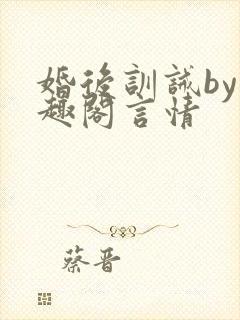 婚後訓誡by
趣閣言情
蔡晋